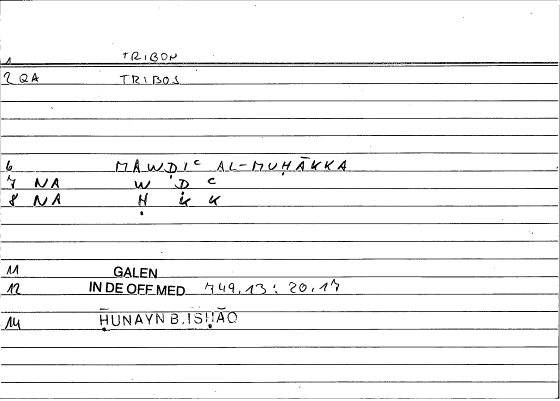 1 TRIBON
2 QA TRIBOS
6 MAWḌIʿ AL-MUḤĀKKA
7 NA W Ḍ ʿ
8 NA Ḥ K K
11 GALEN
12 IN DE OFF MED 749,13 : 20,17
14 ḤUNAYN B. ISḤĀQ